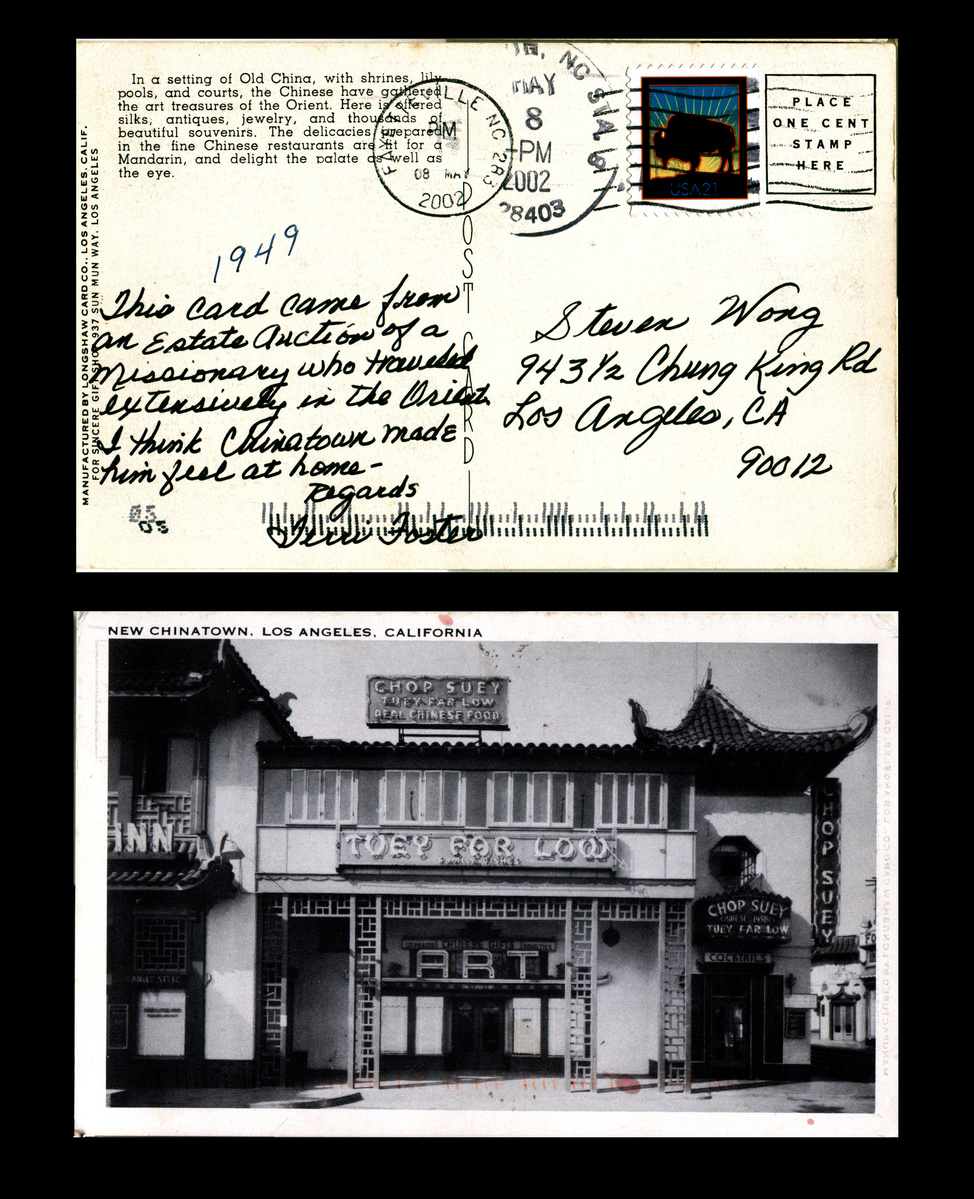 In a setting of Old China, with shrines, lily
pools, and courts, the Chinese have gathered
the art treasures of the Orient. Here is offered
silks, antiques, jewelry, and thousands of
beautiful souvenirs. The delicacies prepared
in the fine Chinese restaurants are fit for a
Mandarin, and delight the palate as well as
the eye.
MANUFACTURED BY LONGSHAW CARD CO., LOS ANGELES, CALIF.
FOR SINCERE GIFT SHOP, 937 SUN MUN WAY, LOS ANGELES
NC
PM
08 MAY
2002
NC
MAY
8
PM
2002
28403
USA 21
PLACE
ONE CENT
STAMP
HERE
POST CARD
1949
This card came from
an Estate Auction of a
Missionary who traveled
extensively in the Orient.
I think Chinatown made
him feel at home -
Regards
Terri Foster
Steven Wong
943 1/2 Chung King Rd
Los Angeles, CA
90012
05
NEW CHINATOWN, LOS ANGELES, CALIFORNIA
CHOP SUEY
TUEY FAR LOW
REAL CHINESE FOOD
INN
TUEY FAR LOW
FAMILY DISHES
CHOP SUEY
CHOP SUEY
TUEY FAR LOW
COCKTAILS
CHINESE GIFTS
ART